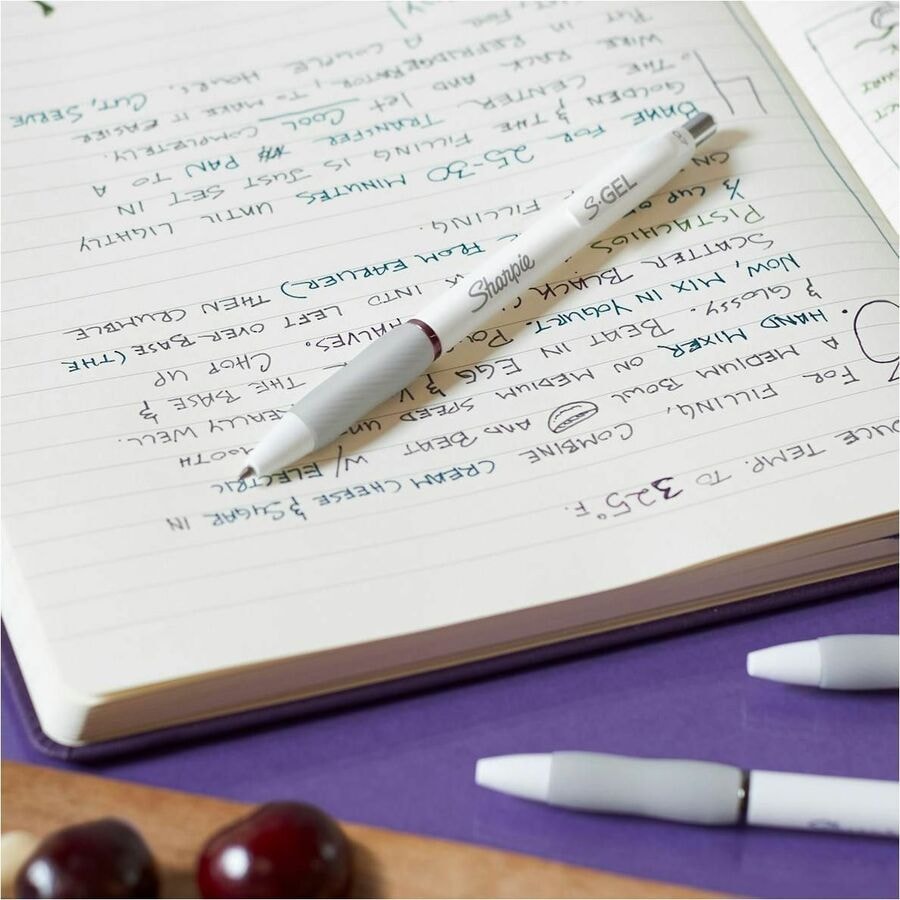 TEMP. TO 325°F.
FOR FILLING, COMBINE CREAM CHEESE & SUGAR IN
A MEDIUM BOWL AND BEAT W/ ELECTRIC
HAND MIXER ON MEDIUM SPEED
& GLOSSY. BEAT IN EGG & REALLY WELL.
NOW, MIX IN YOGURT. THE BASE &
SCATTER BLACK HALVES. CHOP UP
PISTACHIOS INTO LEFT OVER BASE (THE
CUP FROM EARLIER) THEN CRUMBLE
ON FILLING.
4 BAKE FOR 25-30 MINUTES UNTIL LIGHTLY
GOLDEN & THE FILLING IS JUST SET IN
THE CENTER. TRANSFER PAN TO A
WIRE RACK AND let COOL COMPLETELY.
PUT IN REFRIDGERATOR, TO MAKE IT EASIER
A COUPLE HOURS. CUT, SERVE
Sharpie S·GEL